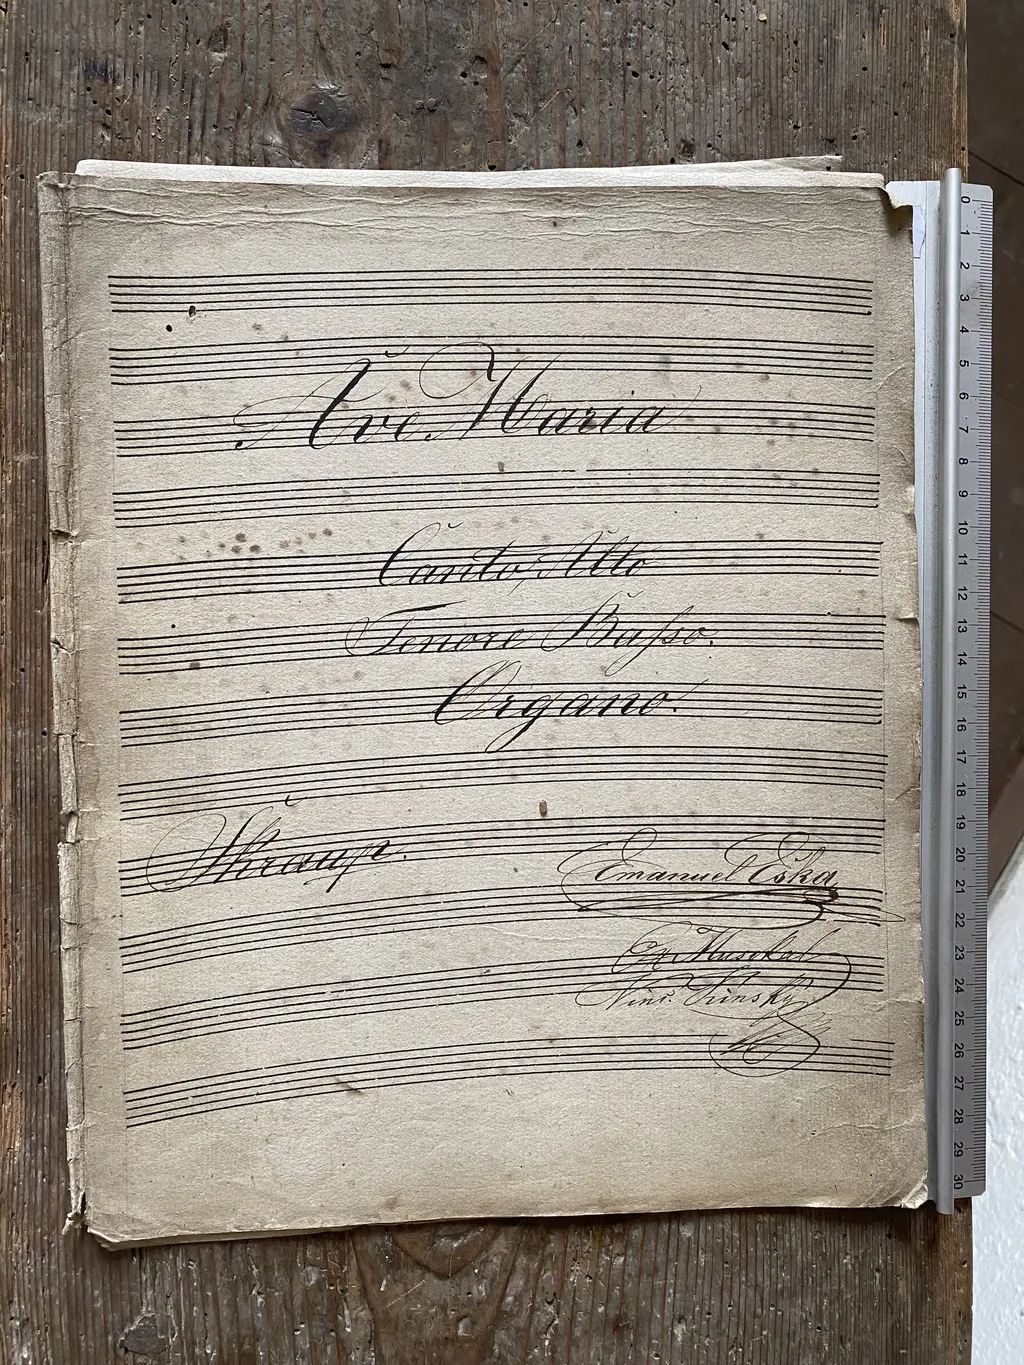 Ave Maria
Canto, Alto
Tenore Baſso.
Organo.
Skraup.
Emanuel Eska
Ex Musikal
Kinsky
0 1 2 3 4 5 6 7 8 9 10 11 12 13 14 15 16 17 18 19 20 21 22 23 24 25 26 27 28 29 30